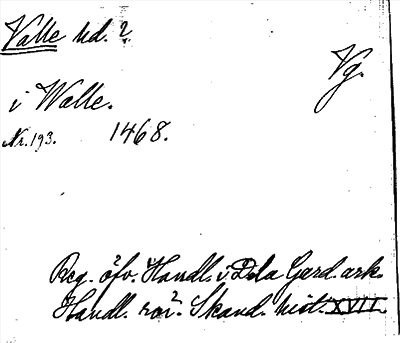 Valle hd.
Vg.
i Walle.
Nr. 193. 1468.
Reg. öfv. Handl. i D. la Gard. ark.
Handl. rör. Skand. hist. XVII.